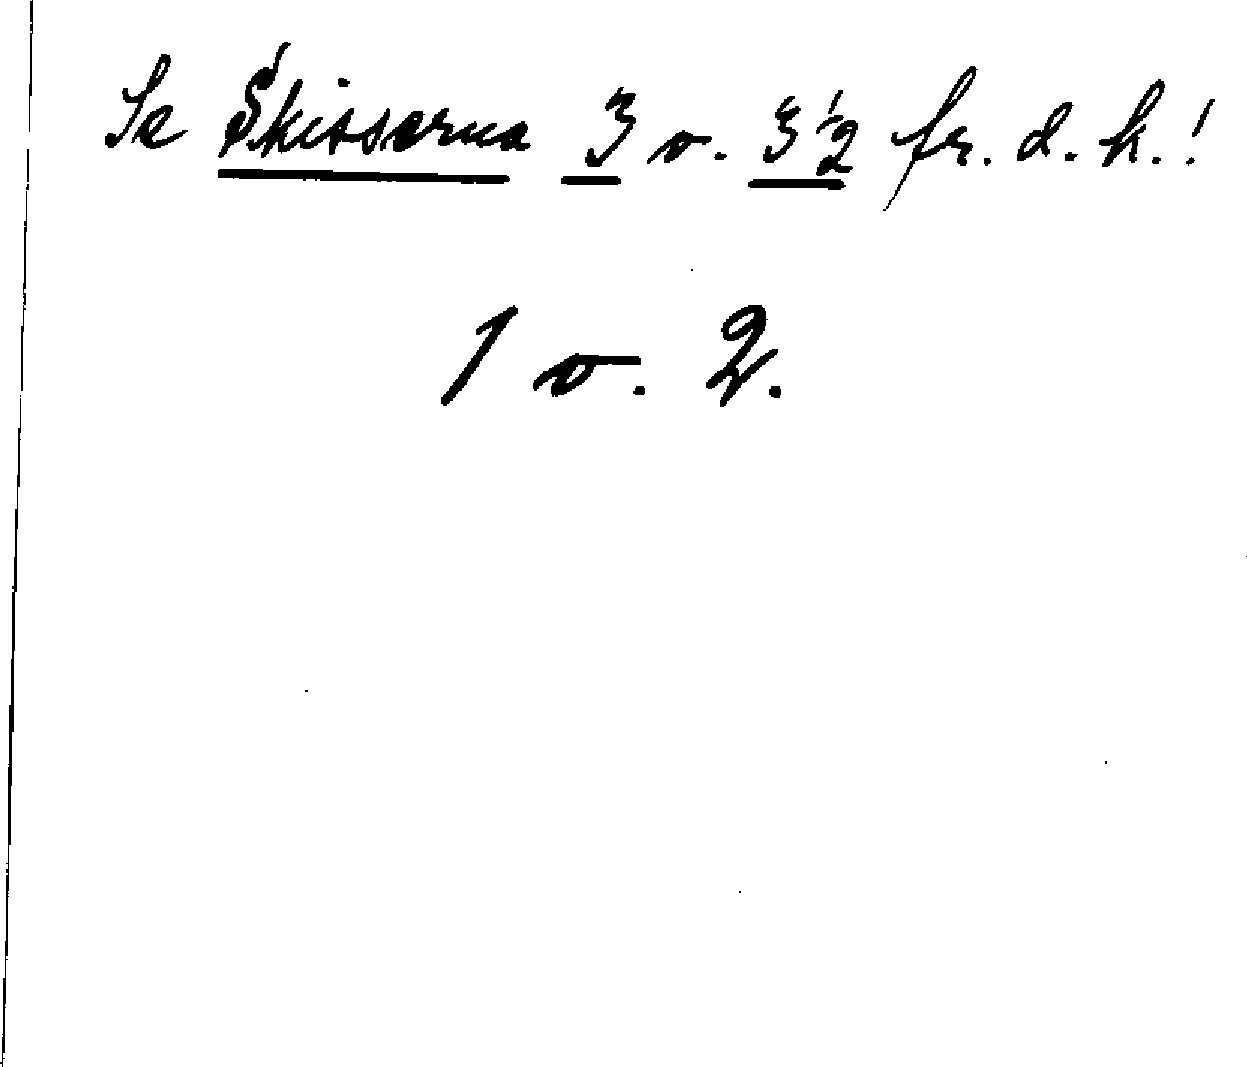 Se Skisserna 3 o. 3½ fr. d. h.!
1 o. 2.